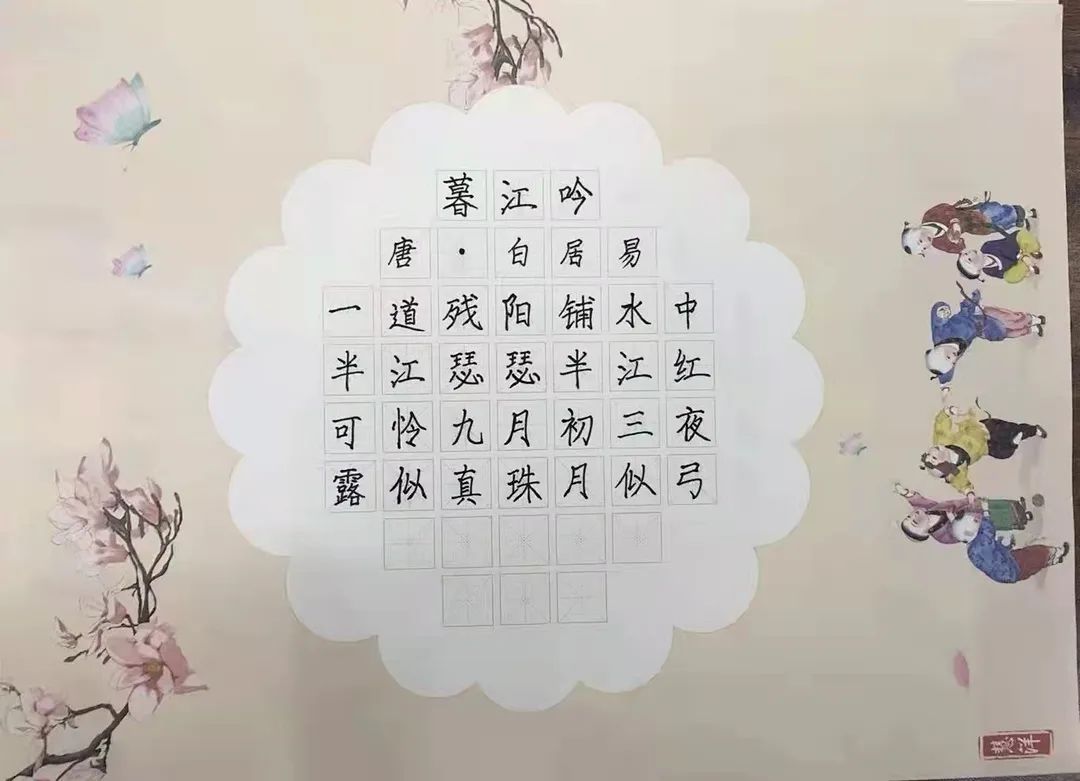 暮江吟
唐·白居易
一道残阳铺水中
半江瑟瑟半江红
可怜九月初三夜
露似真珠月似弓